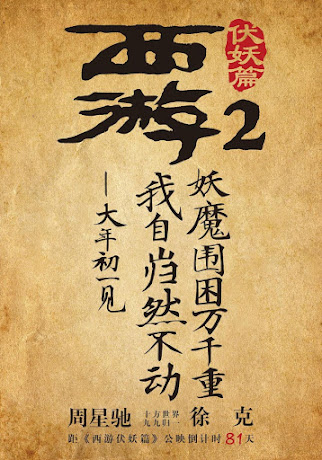 西游2
伏妖篇
妖魔围困万千重
我自岿然不动
—大年初一见
周星驰 十方世界 九九归一 徐克
距《西游伏妖篇》公映倒计时81天